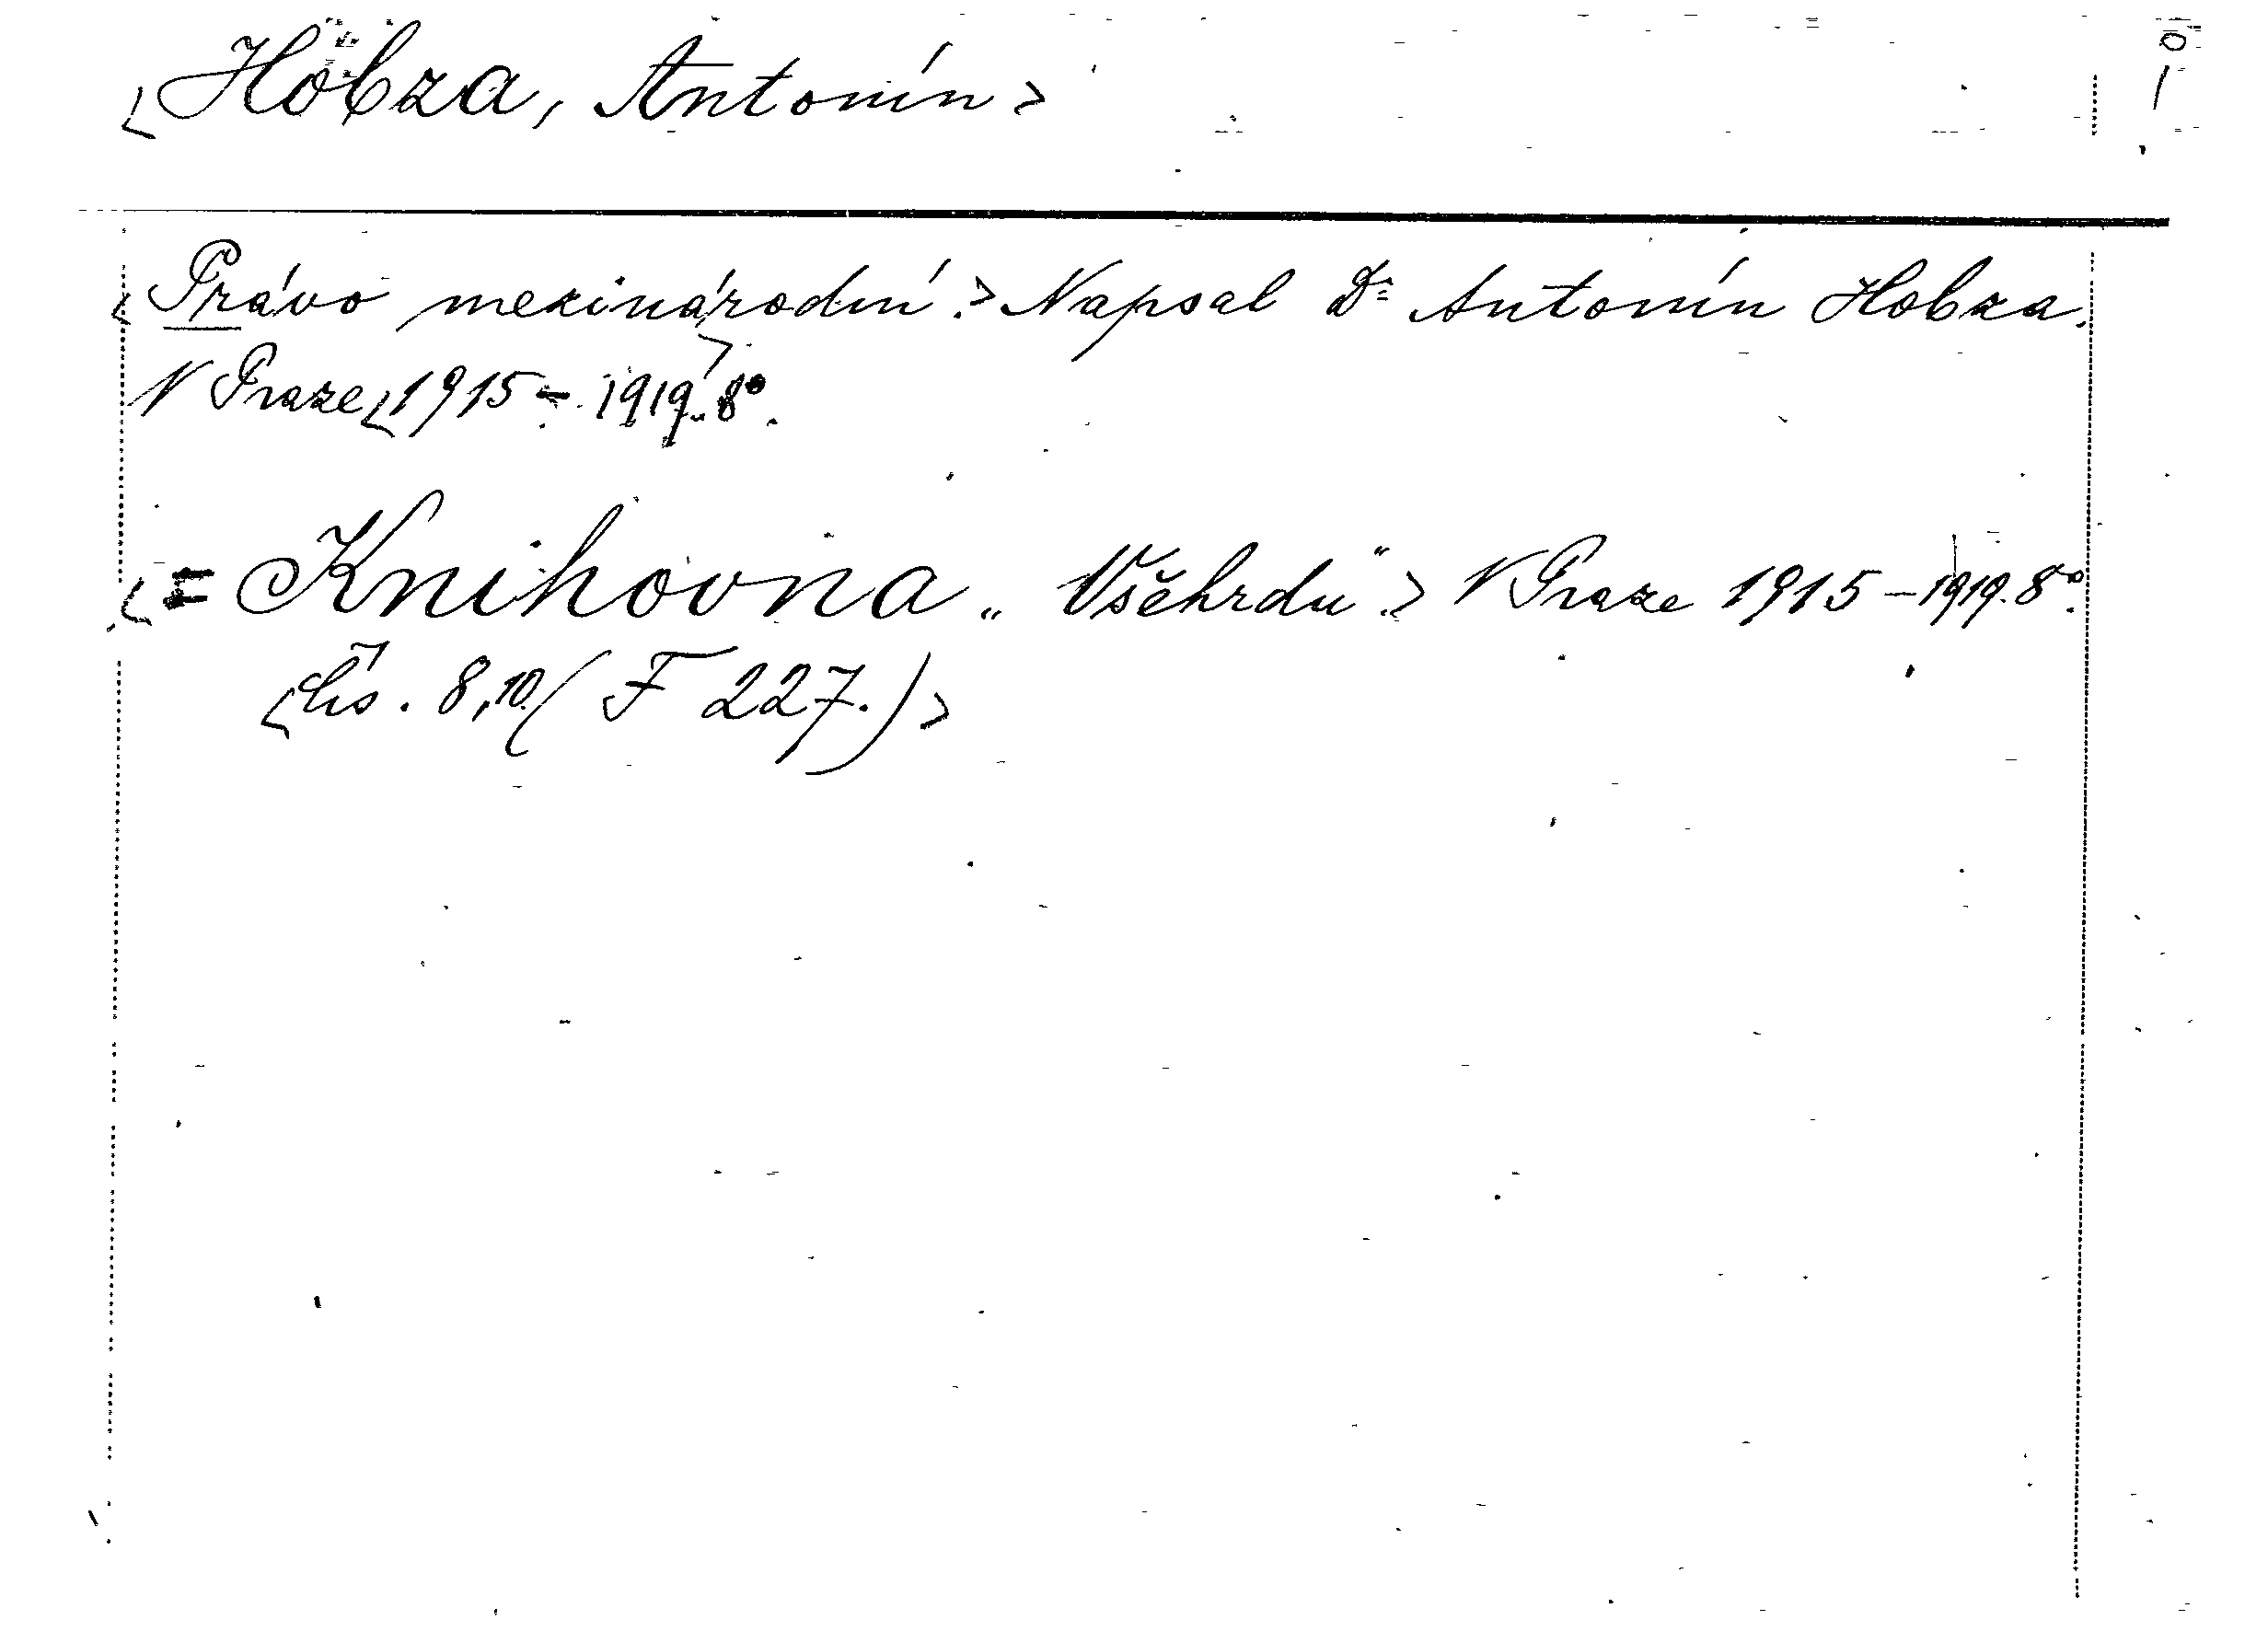 <Hobza, Antonín>
<Právo mezinárodní.> Napsal Dr Antonín Hobza.
V Praze <1915 - 1919.> 8°.
<= Knihovna „Všehrdu“.> V Praze 1915 - 1919. 8°.
<Čís. 8, 10. (F 227.)>